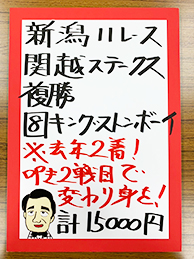 新潟11レース
関越ステークス
複勝
⑧キングストンボーイ
※去年2着!
叩き2戦目で
変わり身を!
計15000円